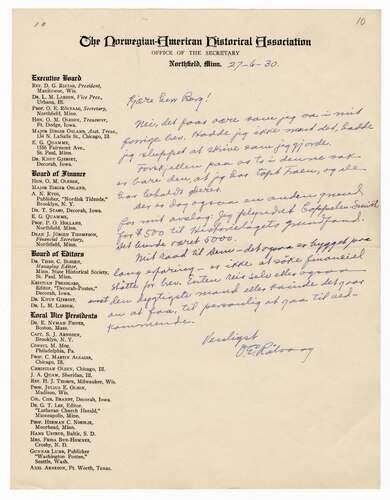 10
10
The Norwegian-American Historical Association
OFFICE OF THE SECRETARY
Northfield, Minn. 27-6-30.
Executive Board
REV. D. G. RISTAD, President,
Manitowoc, Wis.
DR. L. M. LARSON, Vice Pres.,
Urbana, Ill.
PROF. O. E. RÖLVAAG, Secretary,
Northfield, Minn.
HON. O. M. OLESON, Treasurer,
Ft. Dodge, Iowa.
MAJOR BIRGER OSLAND, Asst. Treas.,
134 N. LaSalle St., Chicago, Ill.
E. G. QUAMME,
St. Paul, Minn.
DR. KNUT GJERSET,
Decorah, Iowa.
Board of Finance
HON. O. M. OLESON,
MAJOR BIRGER OSLAND,
A. N. RYGG,
Publisher, "Nordisk Tidende,"
Brooklyn, N. Y.
DR. T. STABO, Decorah, Iowa.
E. G. QUAMME,
PROF. P. O. HOLLAND,
Northfield, Minn.
DEAN J. JÖRGEN THOMPSON,
Financial Secretary,
Northfield, Minn.
Board of Editors
DR. THEO. C. BLEGEN,
Managing Editor,
Minn. State Historical Society,
St. Paul, Minn.
KRISTIAN PRESTGARD,
Editor, "Decorah-Posten,"
Decorah, Iowa.
DR. KNUT GJERSET,
DR. L. M. LARSON,
Local Vice Presidents
DR. E. NYMAN FISHER,
Boston, Mass.
CAPT. S. J. ARNESEN,
Brooklyn, N. Y.
CONSUL M. MOE,
Philadelphia, Pa.
PROF. C. MARTIN ALSAGER,
Chicago, Ill.
CHRISTIAN OLSEN, Chicago, Ill.
J. A. QUAM, Sheridan, Ill.
REV. H. J. THORPE, Milwaukee, Wis.
PROF. JULIUS E. OLSON,
Madison, Wis.
COL. CHR. BRANDT, Decorah, Iowa.
DR. G. T. LEE, Editor,
"Lutheran Church Herald,"
Minneapolis, Minn.
PROF. HERMAN C. NORDLIE,
Moorhead, Minn.
HANS USTRUD, Baltic, S. D.
MRS. FRIDA BUE-HOMNES,
Crosby, N. D.
GUNNAR LUND, Publisher
"Washington Posten,"
Seattle, Wash.
AXEL ARNESON, Ft. Worth, Texas.
Kjære herr Berg!
Nei, det
forrige brev. Hadde jeg ikke
jeg sluppet at skrive som jeg gjorde.
Forskjellen paa os to i denne sak
er bare den, at jeg har tapt troen, og De
har beholdt Deres.
Der er dog ogsaa en anden grund
for mit avslag. Jeg
for $500 til Historielagets grundfond.
Det burde været 5000.
Mit raad til Dem – det ogsaa er bygget paa
lang erfaring – er ikke at söke financiel
stötte for brev. Enten Dem selv eller ogsaa
den dygtigste mand eller kvinde det gaar
an at faa, til personlig at gaa til ved-
kommende.
Venligst
O. E. Rölvaag